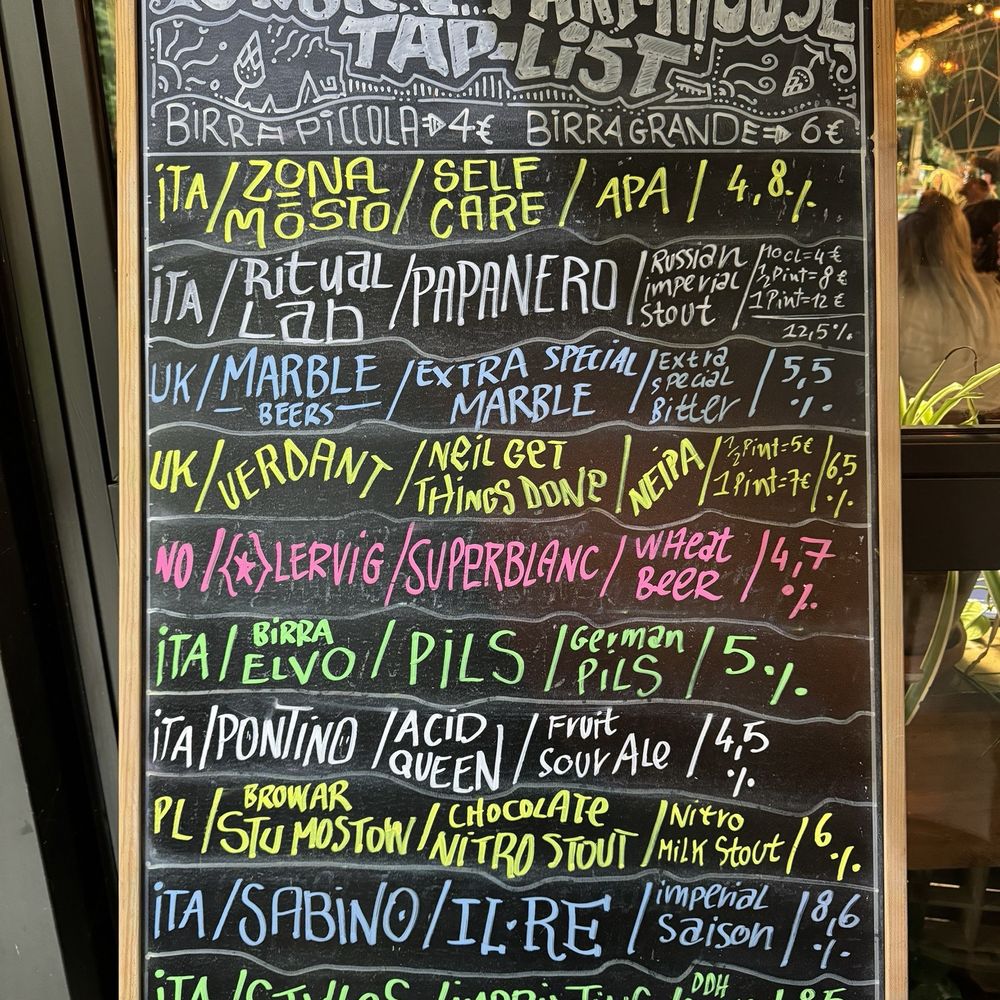 FARMHOUSE
TAP-LIST
BIRRA PICCOLA 4€ BIRRA GRANDE 6€
iTA / ZONA MOSTO / SELF CARE / APA / 4,8.%
iTA / Ritual Lab / PAPANERO / Russian imperial Stout / 10cl=4€ 1/2 Pint=8€ 1 Pint=12€ 12,5%
UK / MARBLE BEERS / EXTRA SPECIAL MARBLE / Extra special Bitter / 5,5 %
UK / VERDANT / Neil Get THINGS DONe / NEiPA / 1/2 Pint=5€ 1 Pint=7€ / 6,5 %
NO / {*}LERViG / SUPERBLANC / WHeat BeeR / 4,7 %
iTA / BiRRA ELVO / PiLS / German PiLS / 5.%
iTA / PONTiNO / ACiD QUEEN / Fruit Sour Ale / 4,5 %
PL / BROWAR STU MOSTOW / CHOCOLATe NiTRO STOUT / Nitro MiLK Stout / 6.%
iTA / SABiNO / IL·RE / imperial Saison / 8,6 %
iTA / DDH